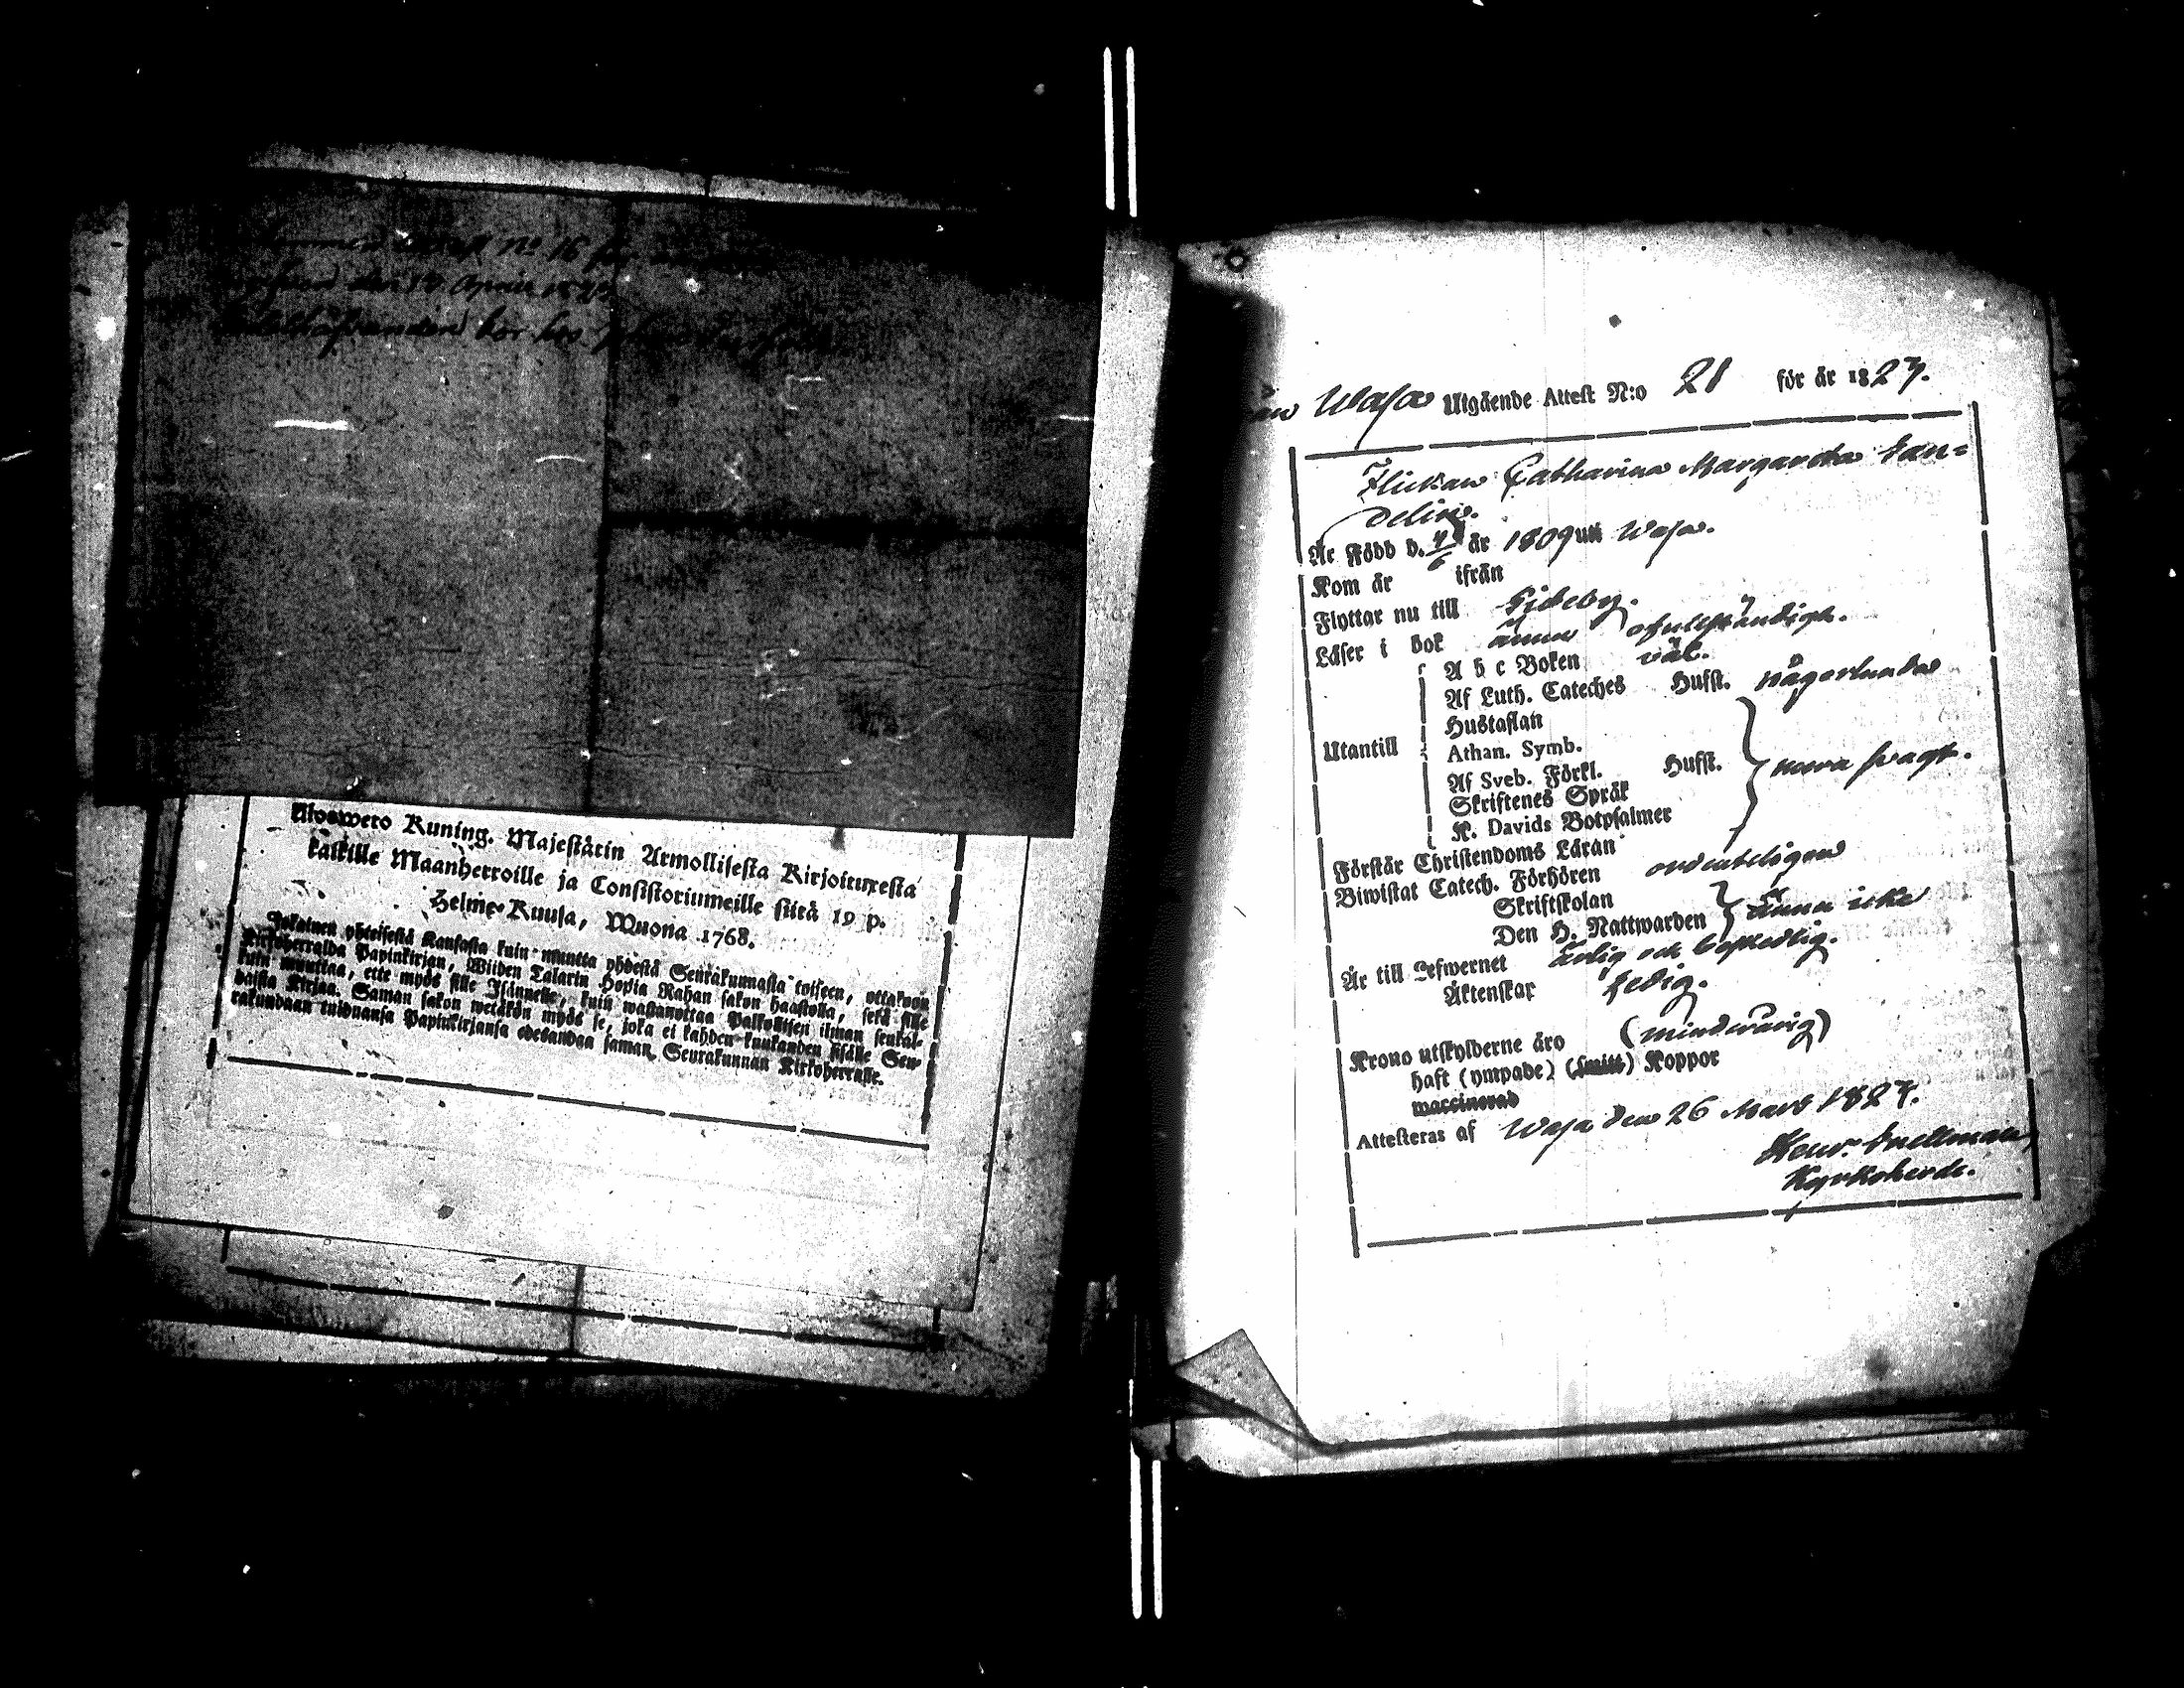 No 16
den 18 April
bor hos
Ulosweto Kuning. Majestätin Armollisesta Kirjoituxesta
kaikille Maanherroille ja Consistoriumeille siitä 19 p.
Helme-Kuusa, Wuona 1768.
Jokainen yhteisestä Kansasta kuin muutta yhdestä Seurakunnasta toiseen, ottakoon
Kirkoherralda Papinkirjan, Wiiden Talarin Hopia Rahan sakon haastolla, sekä sille
kuin muuttaa, ette myös sille Isännelle, kuin wastanottaa Palkollisen ilman seukal-
daista Kirjaa. Saman sakon wetäkön myös se, joka ei kahden kuukauden sisälle Seu-
rakundaan tulduansa Papinkirjansa edesandaa saman Seurakunnan Kirkoherralle.
Wasa Utgående Attest N:o 21 för år 1827.
Flickan Catharina Margareta San=
delin.
Är Född d. 4/6 år 1809 uti Wasa.
Kom år ifrån
Flyttar nu till Sideby.
Läser i bok ännu ofullständigt.
A b c Boken väl.
Af Luth. Cateches Husst. någorlunda
Hustaflan
Utantill Athan. Symb.
Af Sveb. Förkl. Husst. mera svagt.
Skriftenes Språk
K. Davids Botpsalmer
Förstår Christendoms Läran
Biwistat Catech. Förhören ordenteligen
Skriftskolan
Den H. Nattwarden ännu icke
Är till Lefwernet ärlig och beskedlig.
Äktenskap ledig.
Krono utskylderne äro (minderårig)
haft (ympade) (smitt) Koppor
waccinerad
Attesteras af Wasa den 26 Mars 1827.
Henr. Snellman,
Kyrkoherde.